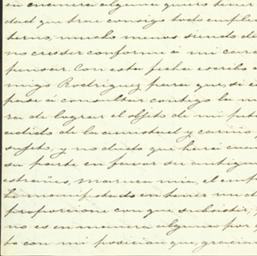 en manera alguna quiero tener
dad que trae consigo todo emplea
terno, mucho menos siendo de
no creder conforme á mi cará
pensar. Con esta fecha escribo á
migo Rodriguez para que, si es
pase á consultar contigo la ma
ra de lograr el objeto de mi peti
atido de la amistad y cariño
sujeto, y no dudo que hará cuan
su parte en favor su antiguo
estrañes, mamá mia, el emp
he manifestado en tener un d
proporcione con que subsistir,
no es en manera alguna por
to con mi posicion que, gracia